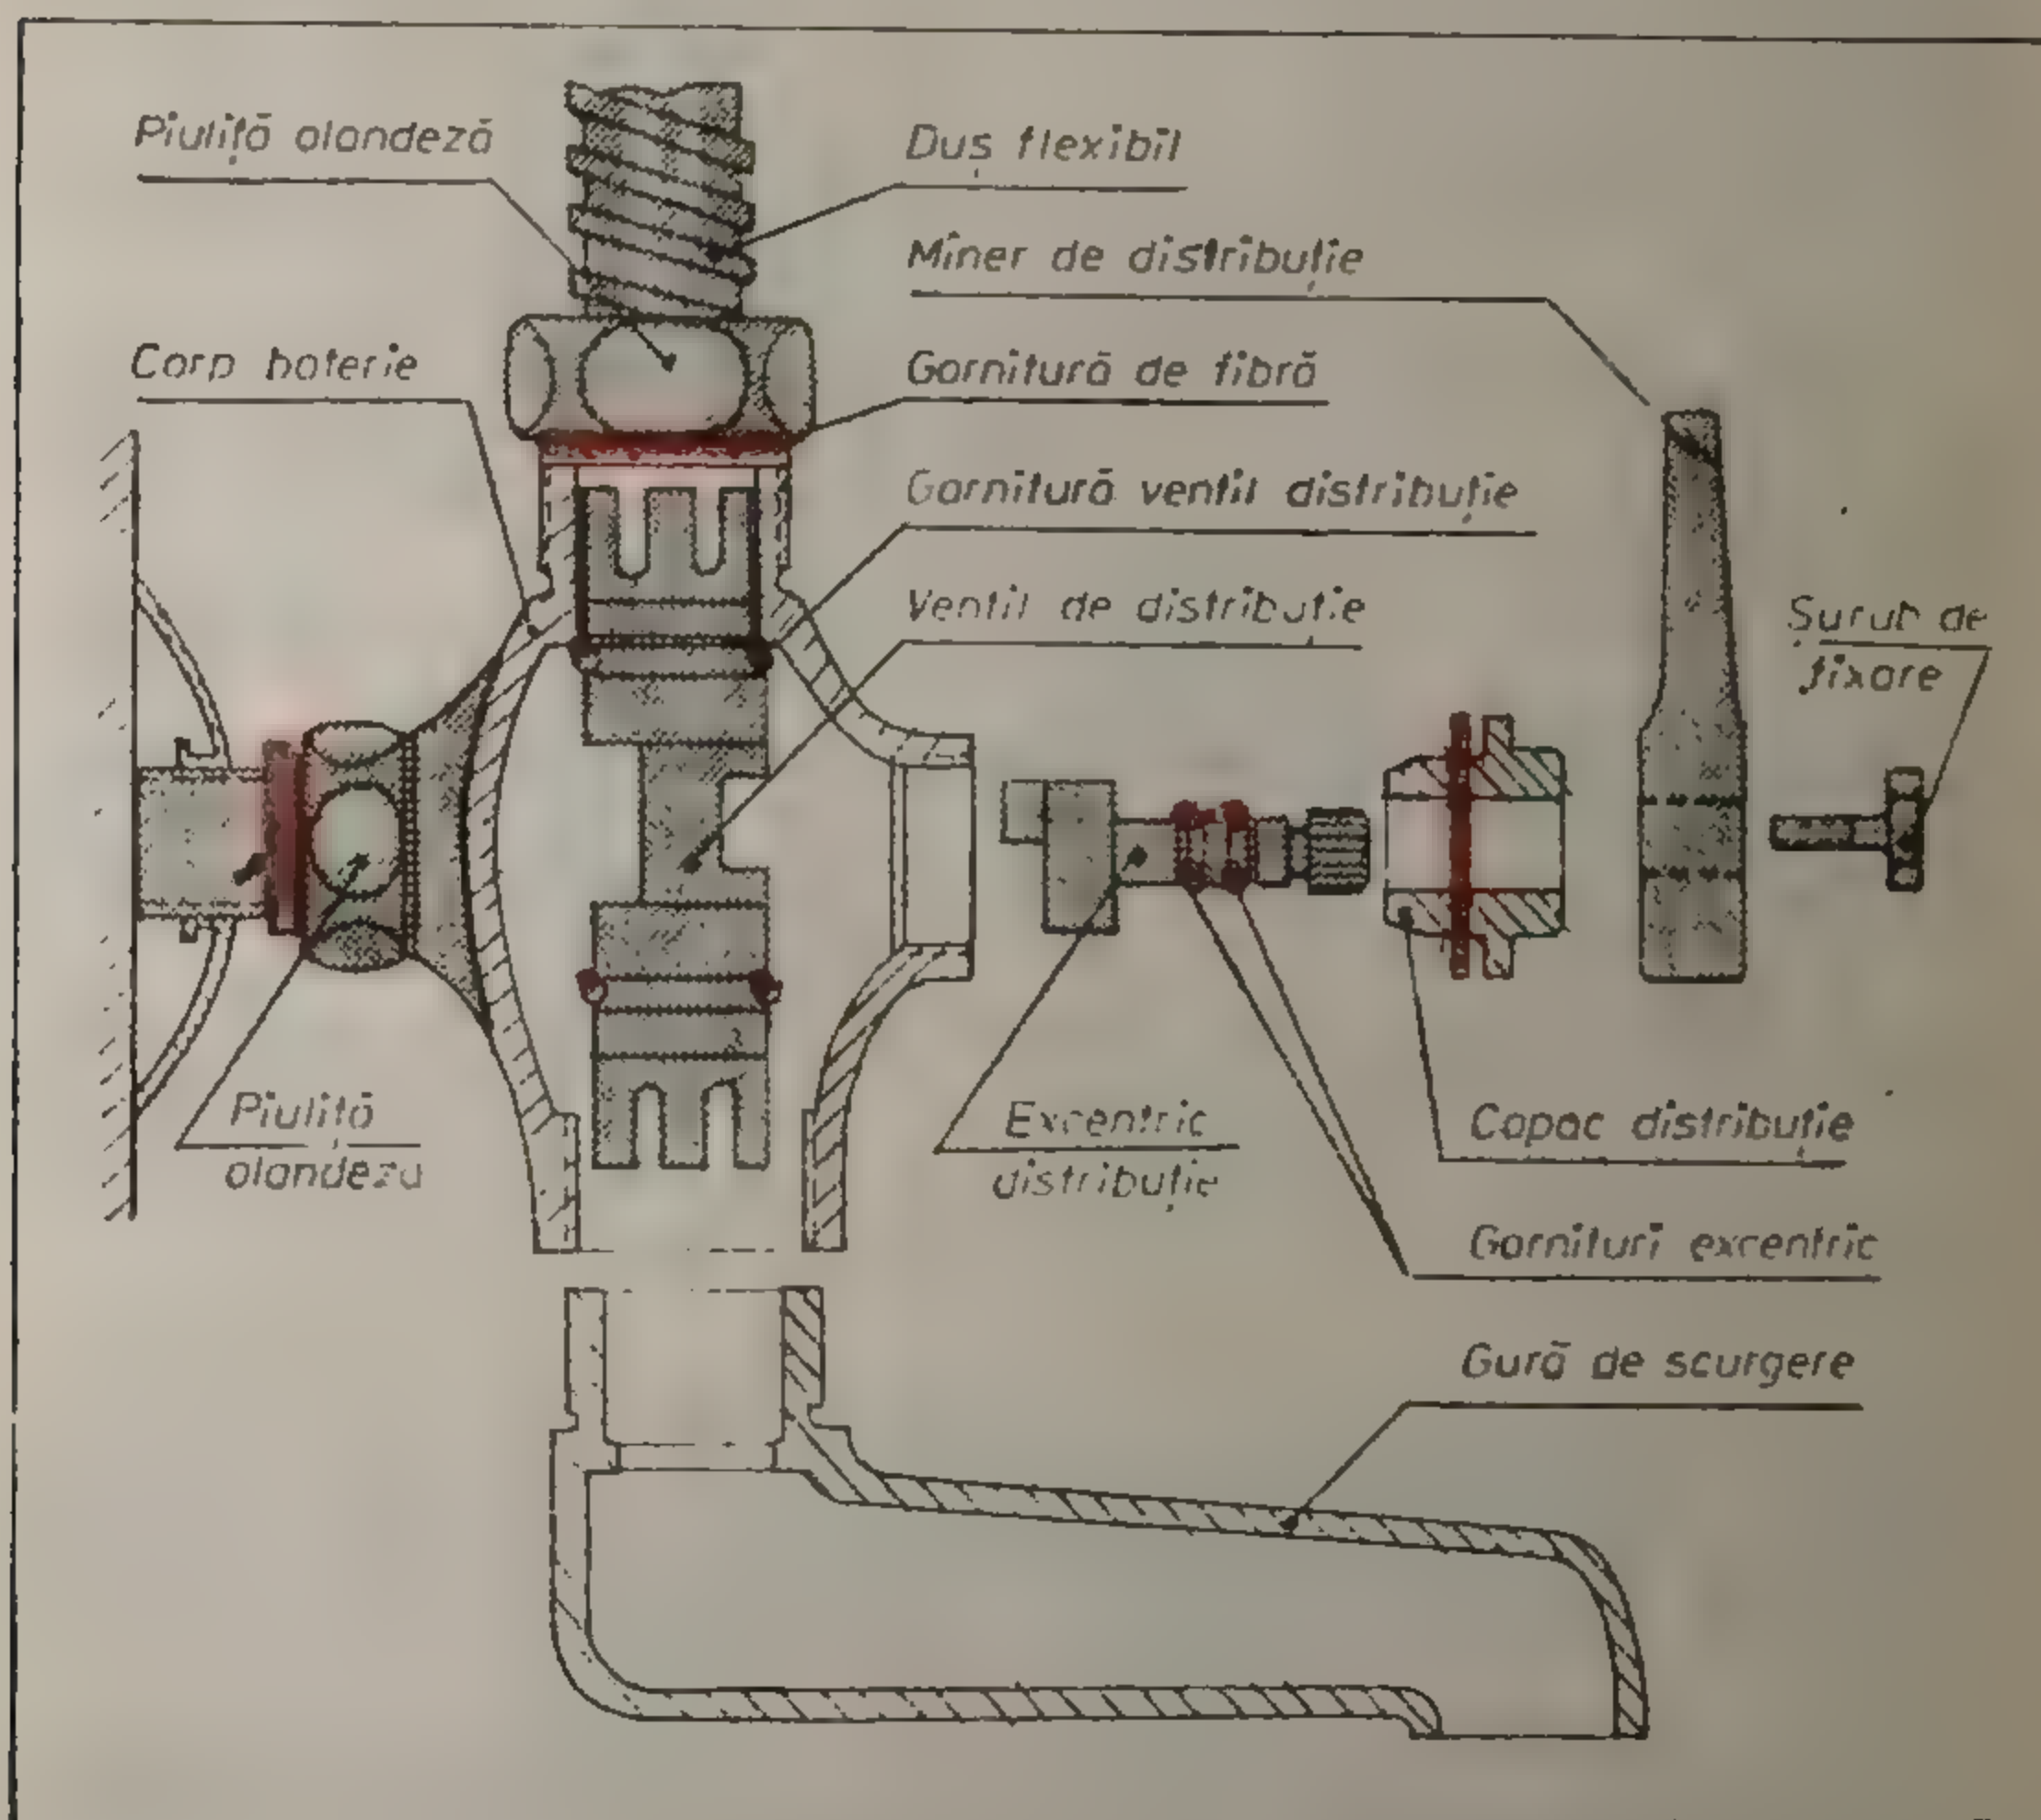 Piuliță olandeză
Duș flexibil
Mîner de distribuție
Corp baterie
Garnitură de fibră
Garnitură ventil distribuție
Ventil de distribuție
Șurub de
fixare
Piuliță
olandeză
Excentric
distribuție
Capac distribuție
Garnituri excentric
Gură de scurgere